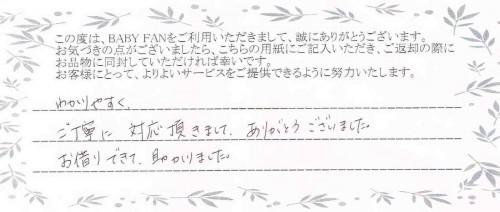 この度は、BABY FANをご利用いただきまして、誠にありがとうございます。
お気づきの点がございましたら、こちらの用紙にご記入いただき、ご返却の際に
お品物に同封していただければ幸いです。
お客様にとって、よりよいサービスをご提供できるように努力いたします。
わかりやすく、
ご丁寧に 対応頂きまして、ありがとうございました。
お借りできて、助かりました。